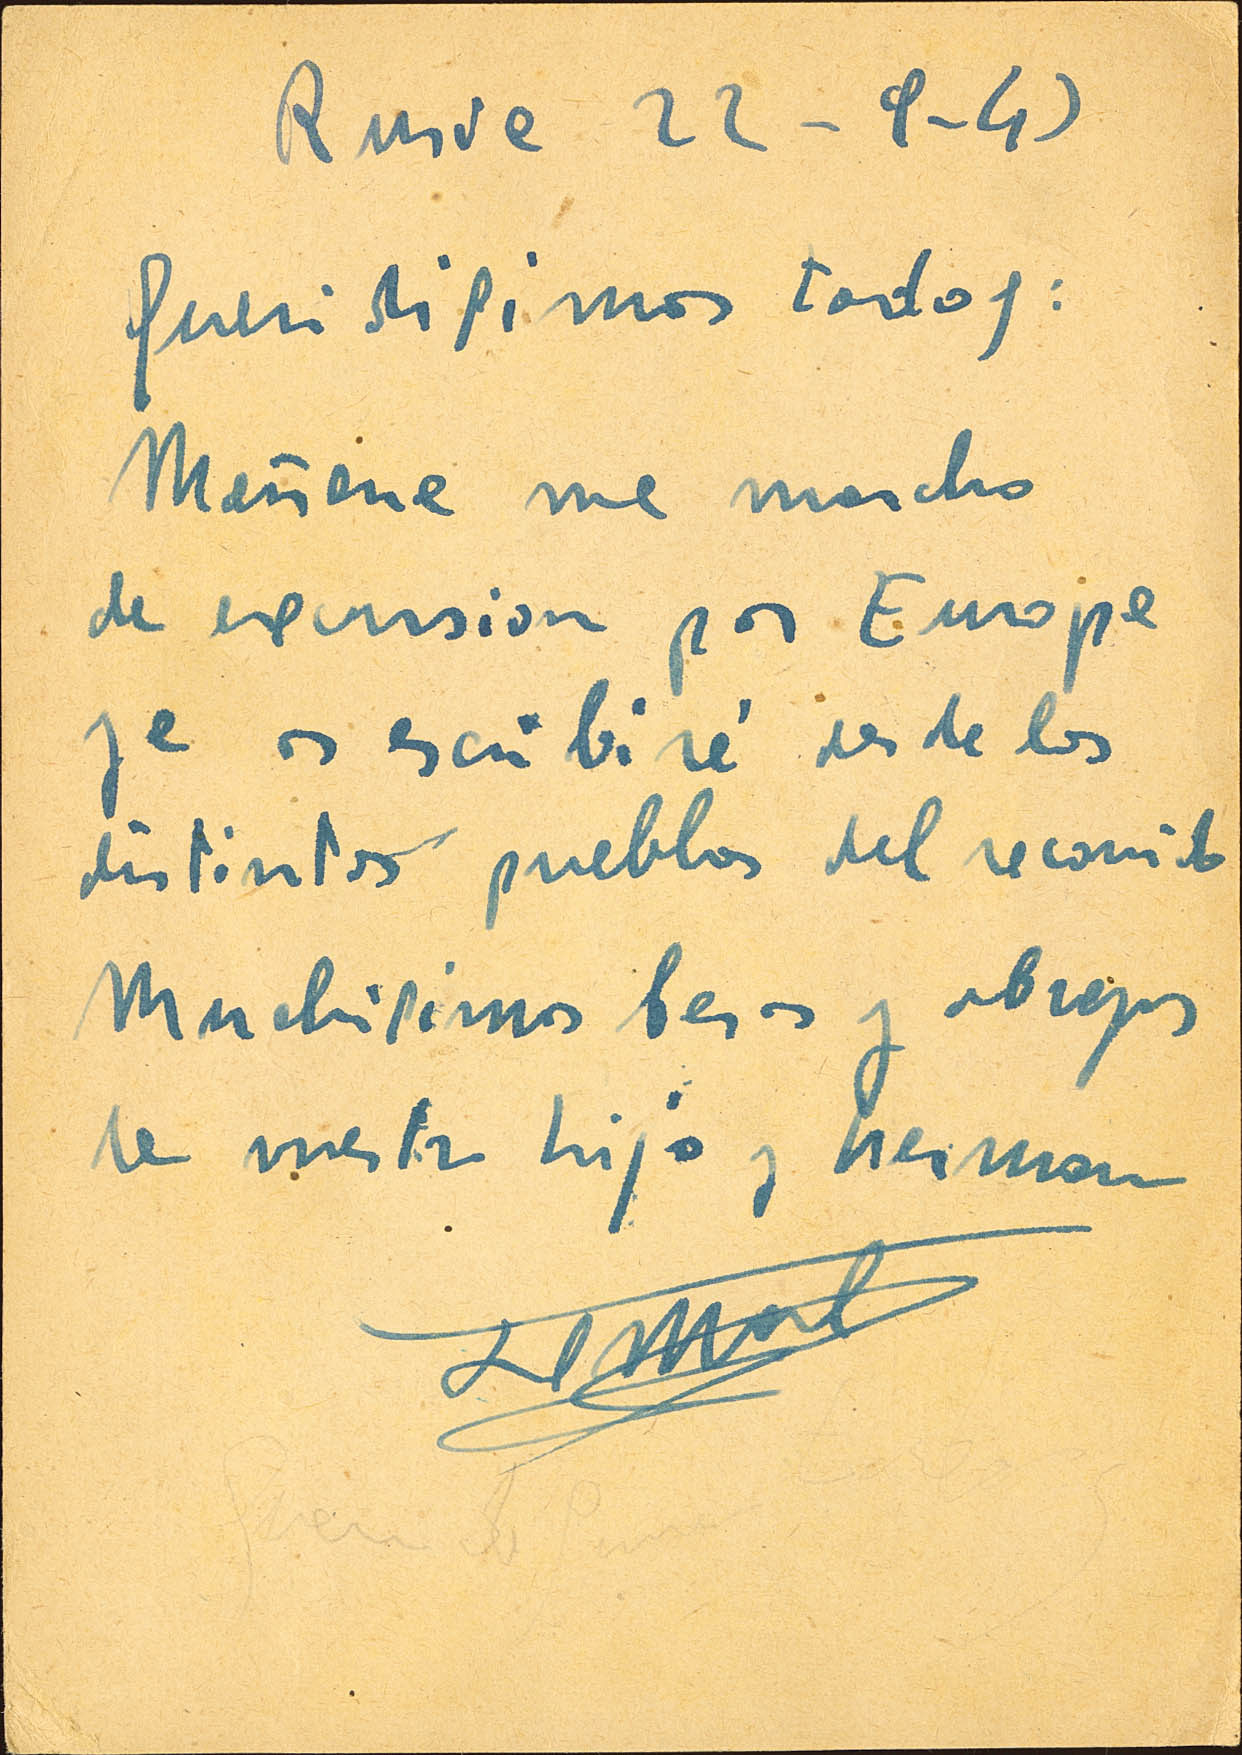 Rusia 22-9-43
Queridisimos todos:
Mañana me marcho
de excursion por Europa
ya os escribiré desde los
distintos pueblos del recorrido
Muchisimos besos y abrazos
de vuestro hijo y hermano